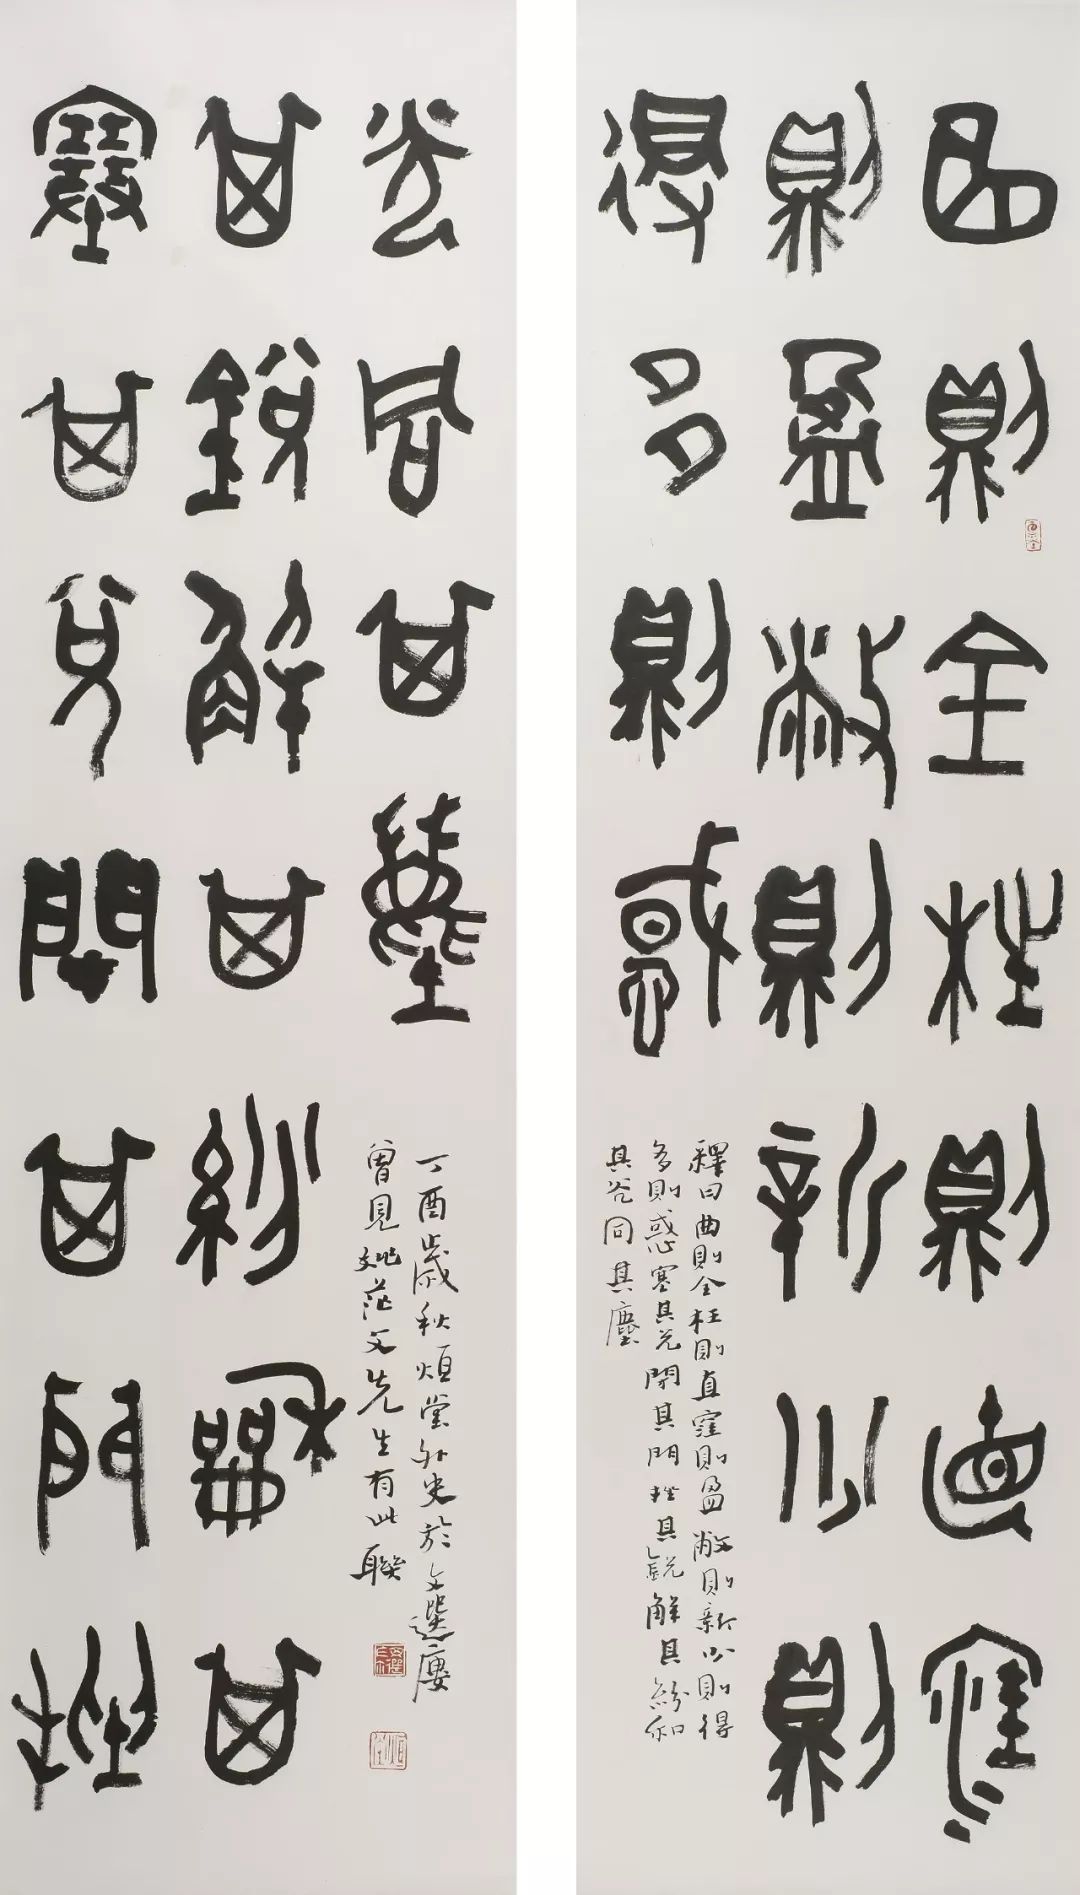 曲則全枉則直窪
則盈敝則新少則
得多則惑
釋曰曲則全枉則直窪則盈敝則新少則得
多則惑塞其兌閉其門挫其銳解其紛和
其光同其塵
塞其兌閉其門挫
其銳解其紛和其
光同其塵
丁酉歲秋烜堂外史於文選廔
曾見姚茫父先生有此聯